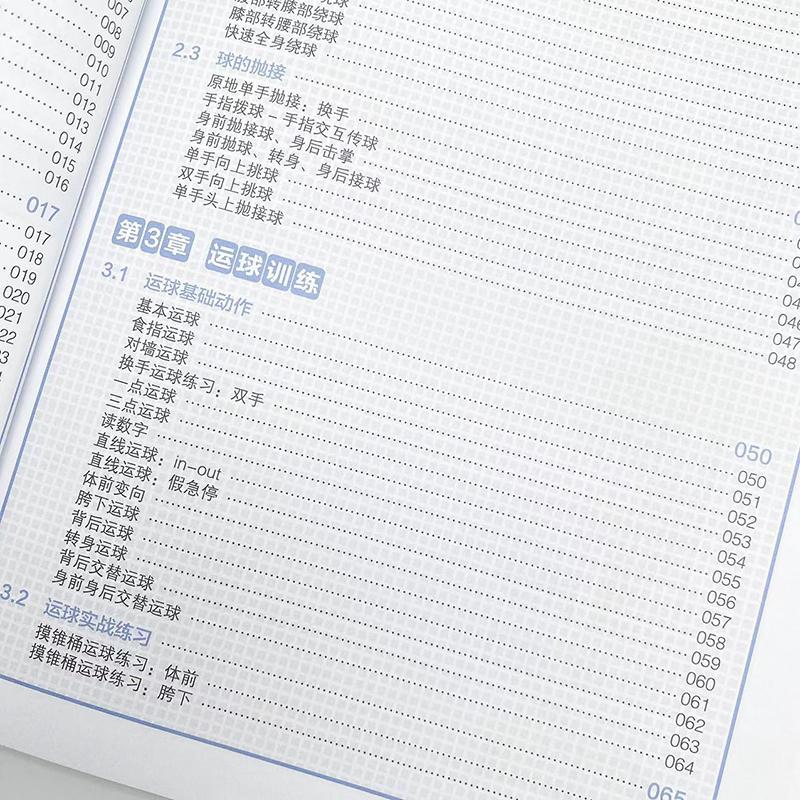 007
008
009
010
011
012
013
014
015
016
017
017
018
019
020
膝部转腰部绕球
快速全身绕球
2.3 球的抛接
原地单手抛接：换手
手指拨球－手指交互传球
身前抛接球、身后击掌
身前抛球、转身、身后接球
单手向上挑球
双手向上挑球 047
单手头上抛接球 048
第3章 运球训练
3.1 运球基础动作 050
基本运球 050
食指运球 051
对墙运球 052
换手运球练习：双手 053
一点运球 054
三点运球 055
读数字 056
直线运球：in-out 057
直线运球：假急停 058
体前变向 059
胯下运球 060
背后运球 061
转身运球 062
背后交替运球 063
身前身后交替运球 064
3.2 运球实战练习 065
摸锥桶运球练习：体前
摸锥桶运球练习：胯下